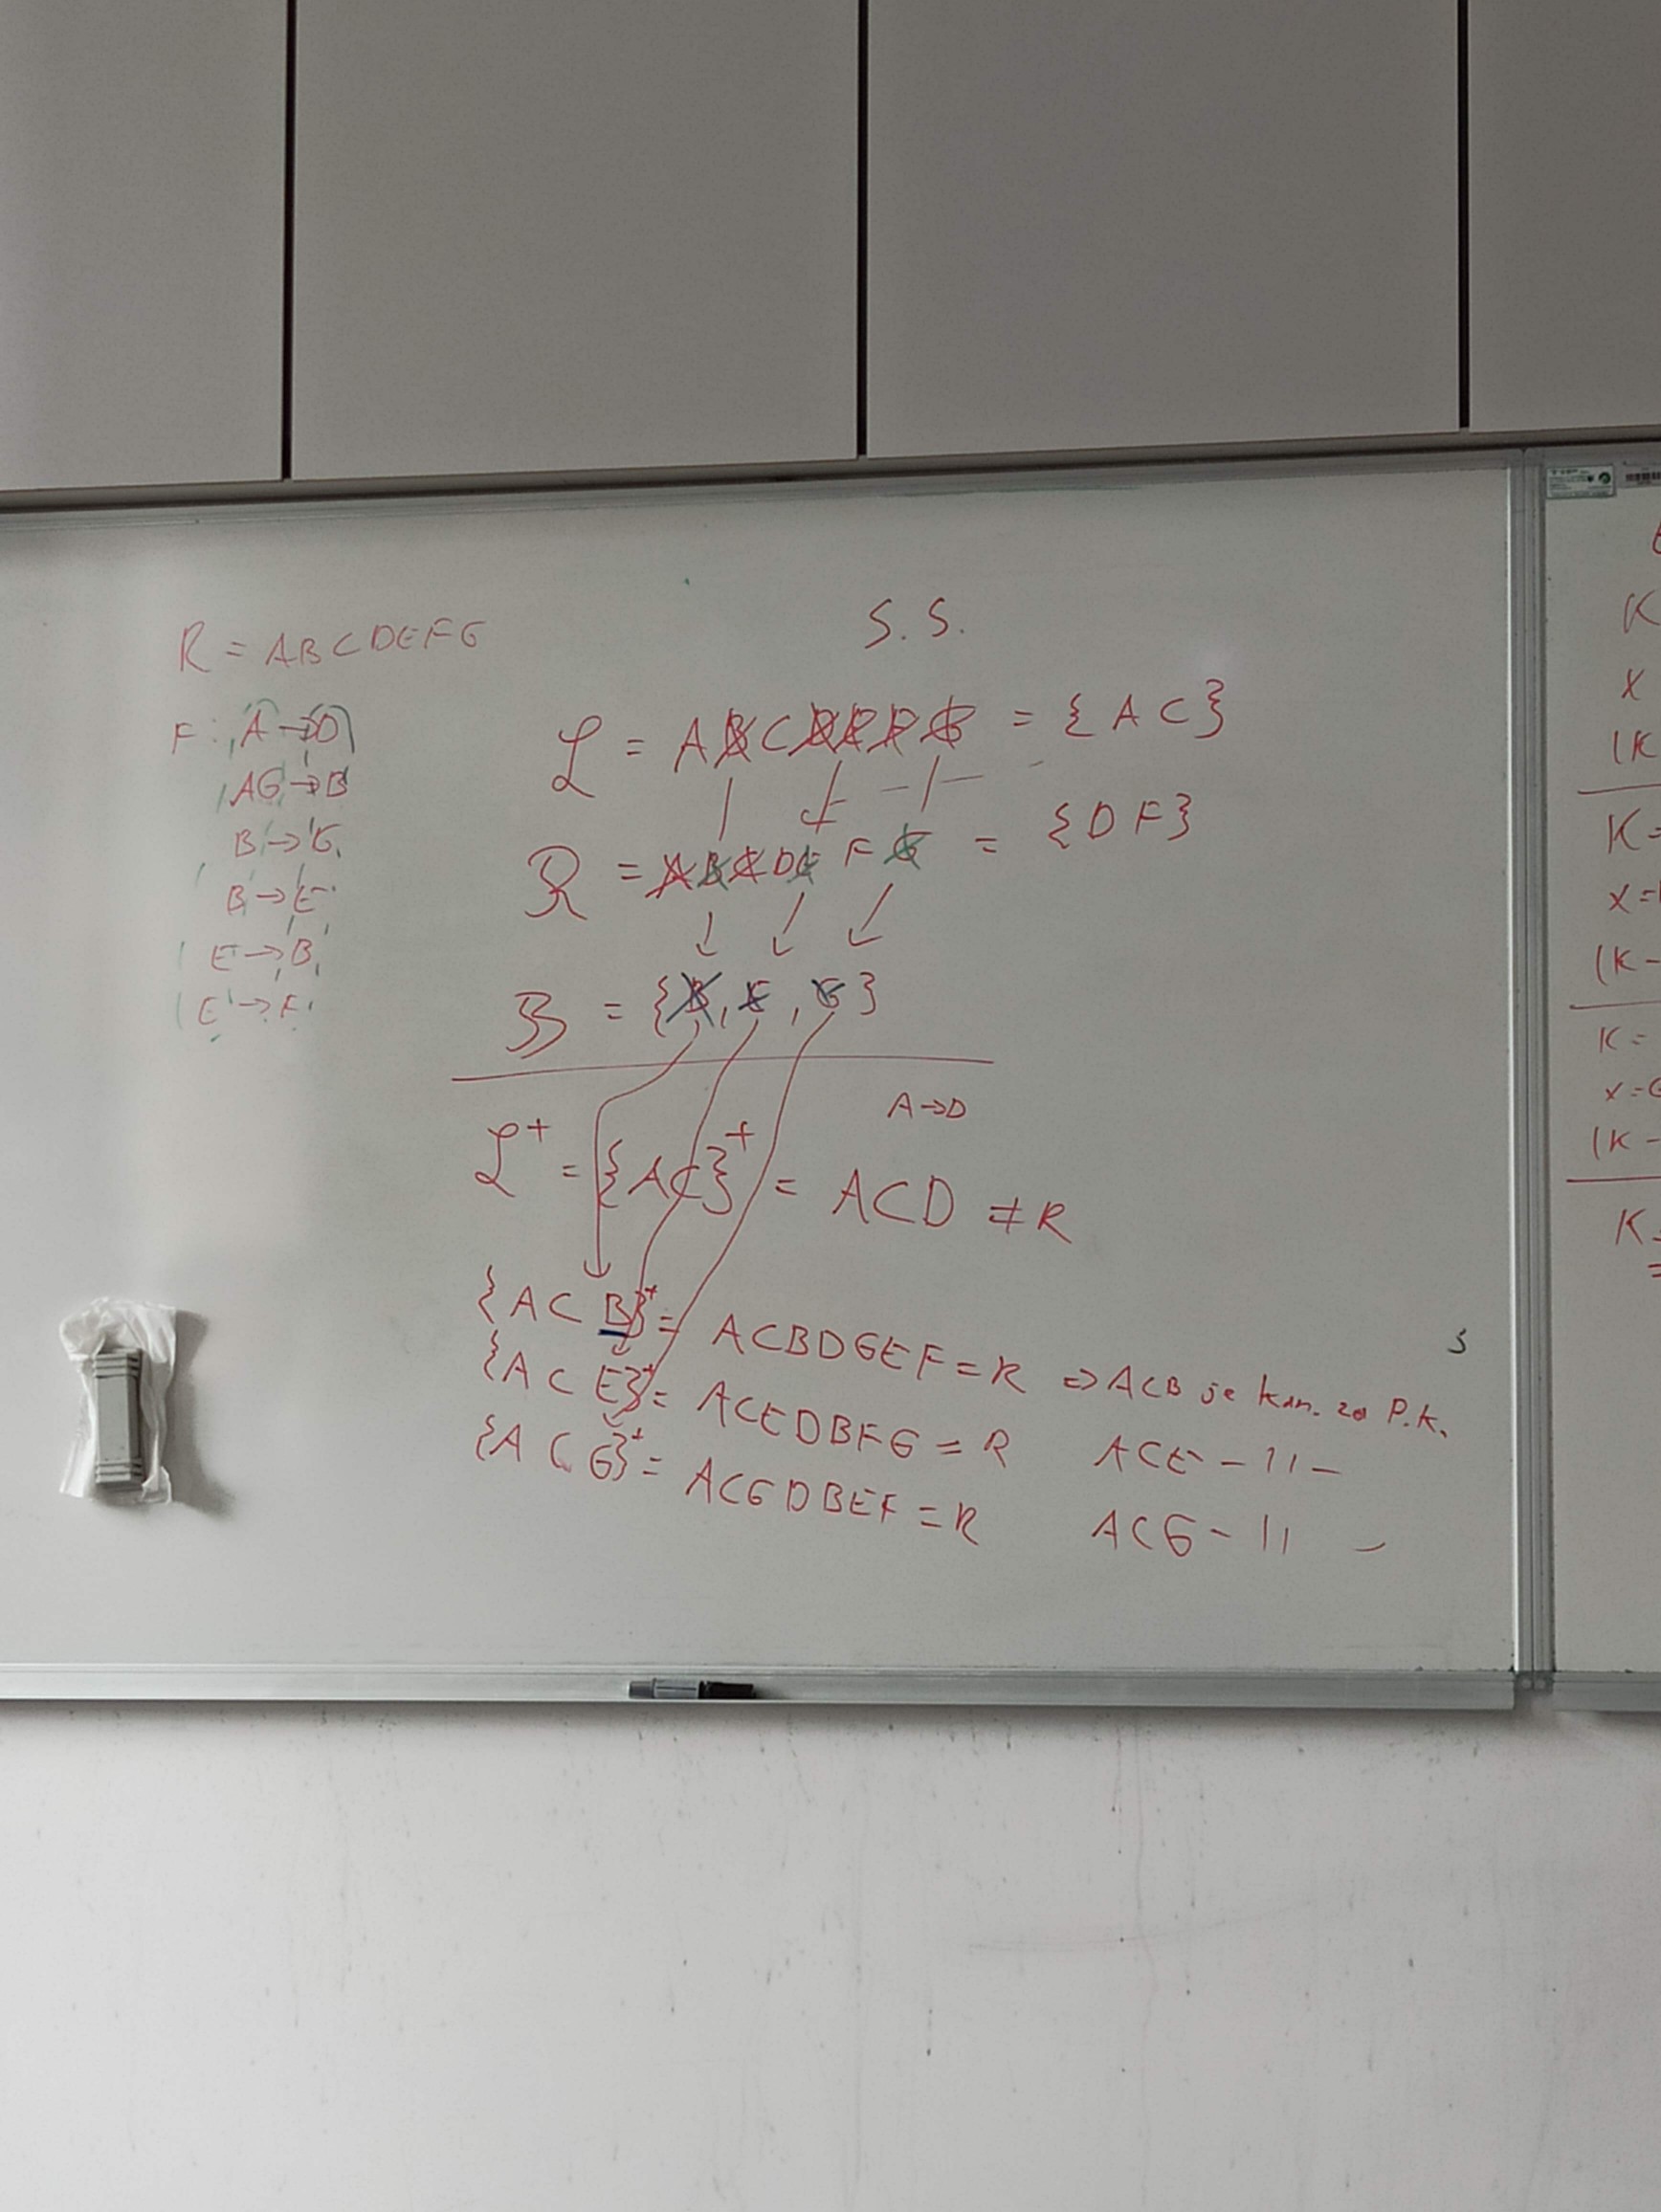 R = ABCDEFG
F: A → D
AG → B
B → G
B → E
E → B
E → F
S. S.
L = ABCDEFG = {AC}
R = ABCDEFG = {DF}
B = {B, E, G}
A → D
L+ = {AC}+ = ACD ≠ R
{ACB}+ = ACBDGEF = R ⇒ ACB je kan. za P.K.
{ACE}+ = ACEDBFG = R ACE - 11 -
{ACG}+ = ACGDBEF = R ACG - 11 -
K
X
(K
K =
X =
(K -
K =
X = G
(K -
K =
=